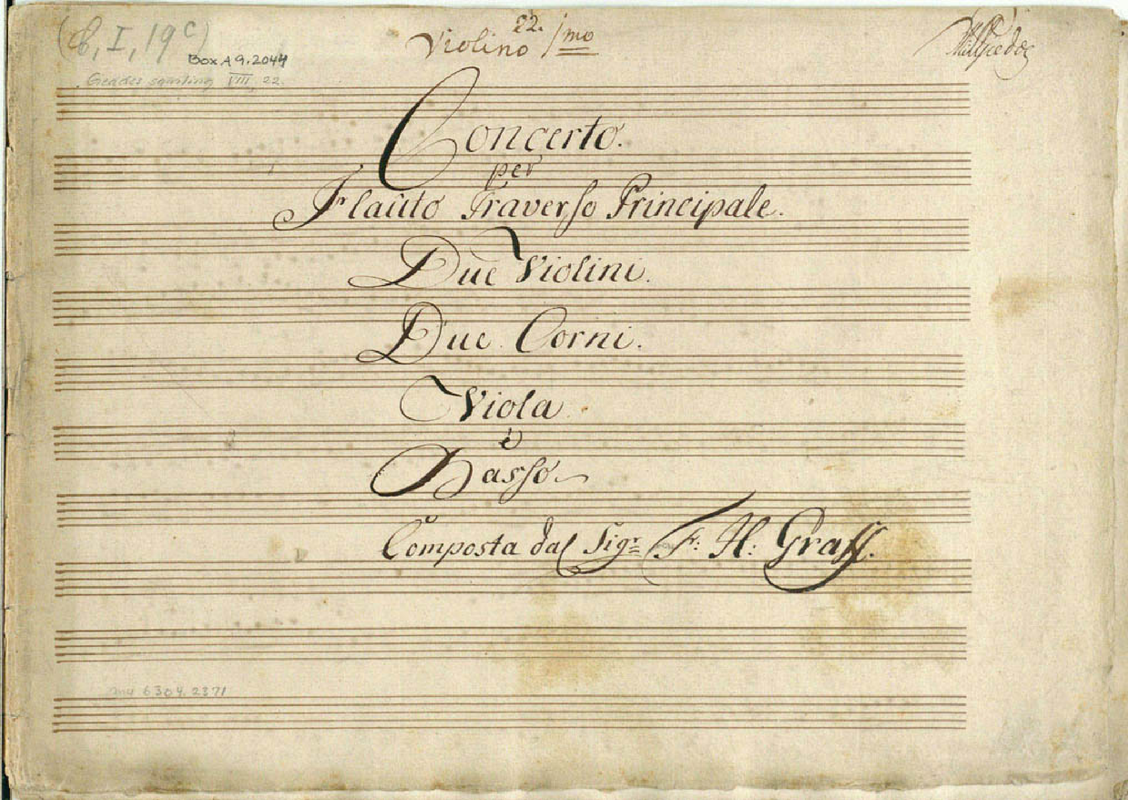 (C, I, 19c)
Box A 9.2044
Giedde samling VIII, 22.
22.
Violino 1mo
Concerto.
per
Flauto Traverso Principale.
Due Violini.
Due Corni.
Viola
è
Basso
Composta dal Sigr: F: H: Graff.
mu 6304.2371